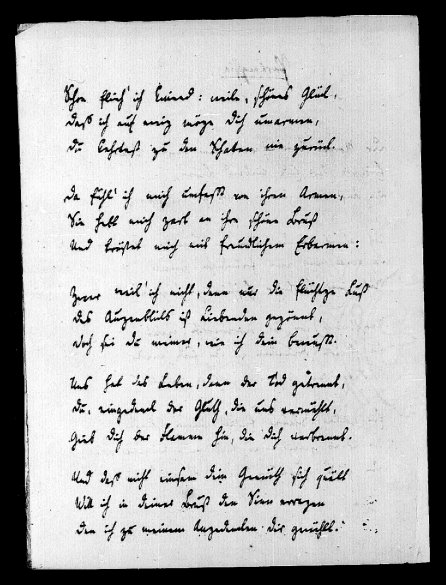 Schon fleh' ich knieend: weile, schönes Glück,
Daß ich auf ewig möge dich umarmen,
Du kehrtest zu den Schatten nie zurück.
Da fühl' ich mich umfaßt von ihren Armen,
Sie hebt mich zart an ihre schöne Brust
Und tröstet mich mit freundlichem Erbarmen:
Zwar weil' ich nicht, denn nur die flücht'ge Lust
Des Augenblicks ist Liebenden gegönnt,
Doch sei du meiner, wie ich dein bewußt.
Uns hat das Leben, dann der Tod getrennt,
Du, eingedenk der Gluth, die uns vermählt,
Gieb dich der Flamme hin, die dich verbrennt.
Und daß nicht einsam dein Gemüth sich quält
Will ich in deiner Brust den Sinn erregen
Den ich zu meinem Angedenken dir gewählt.